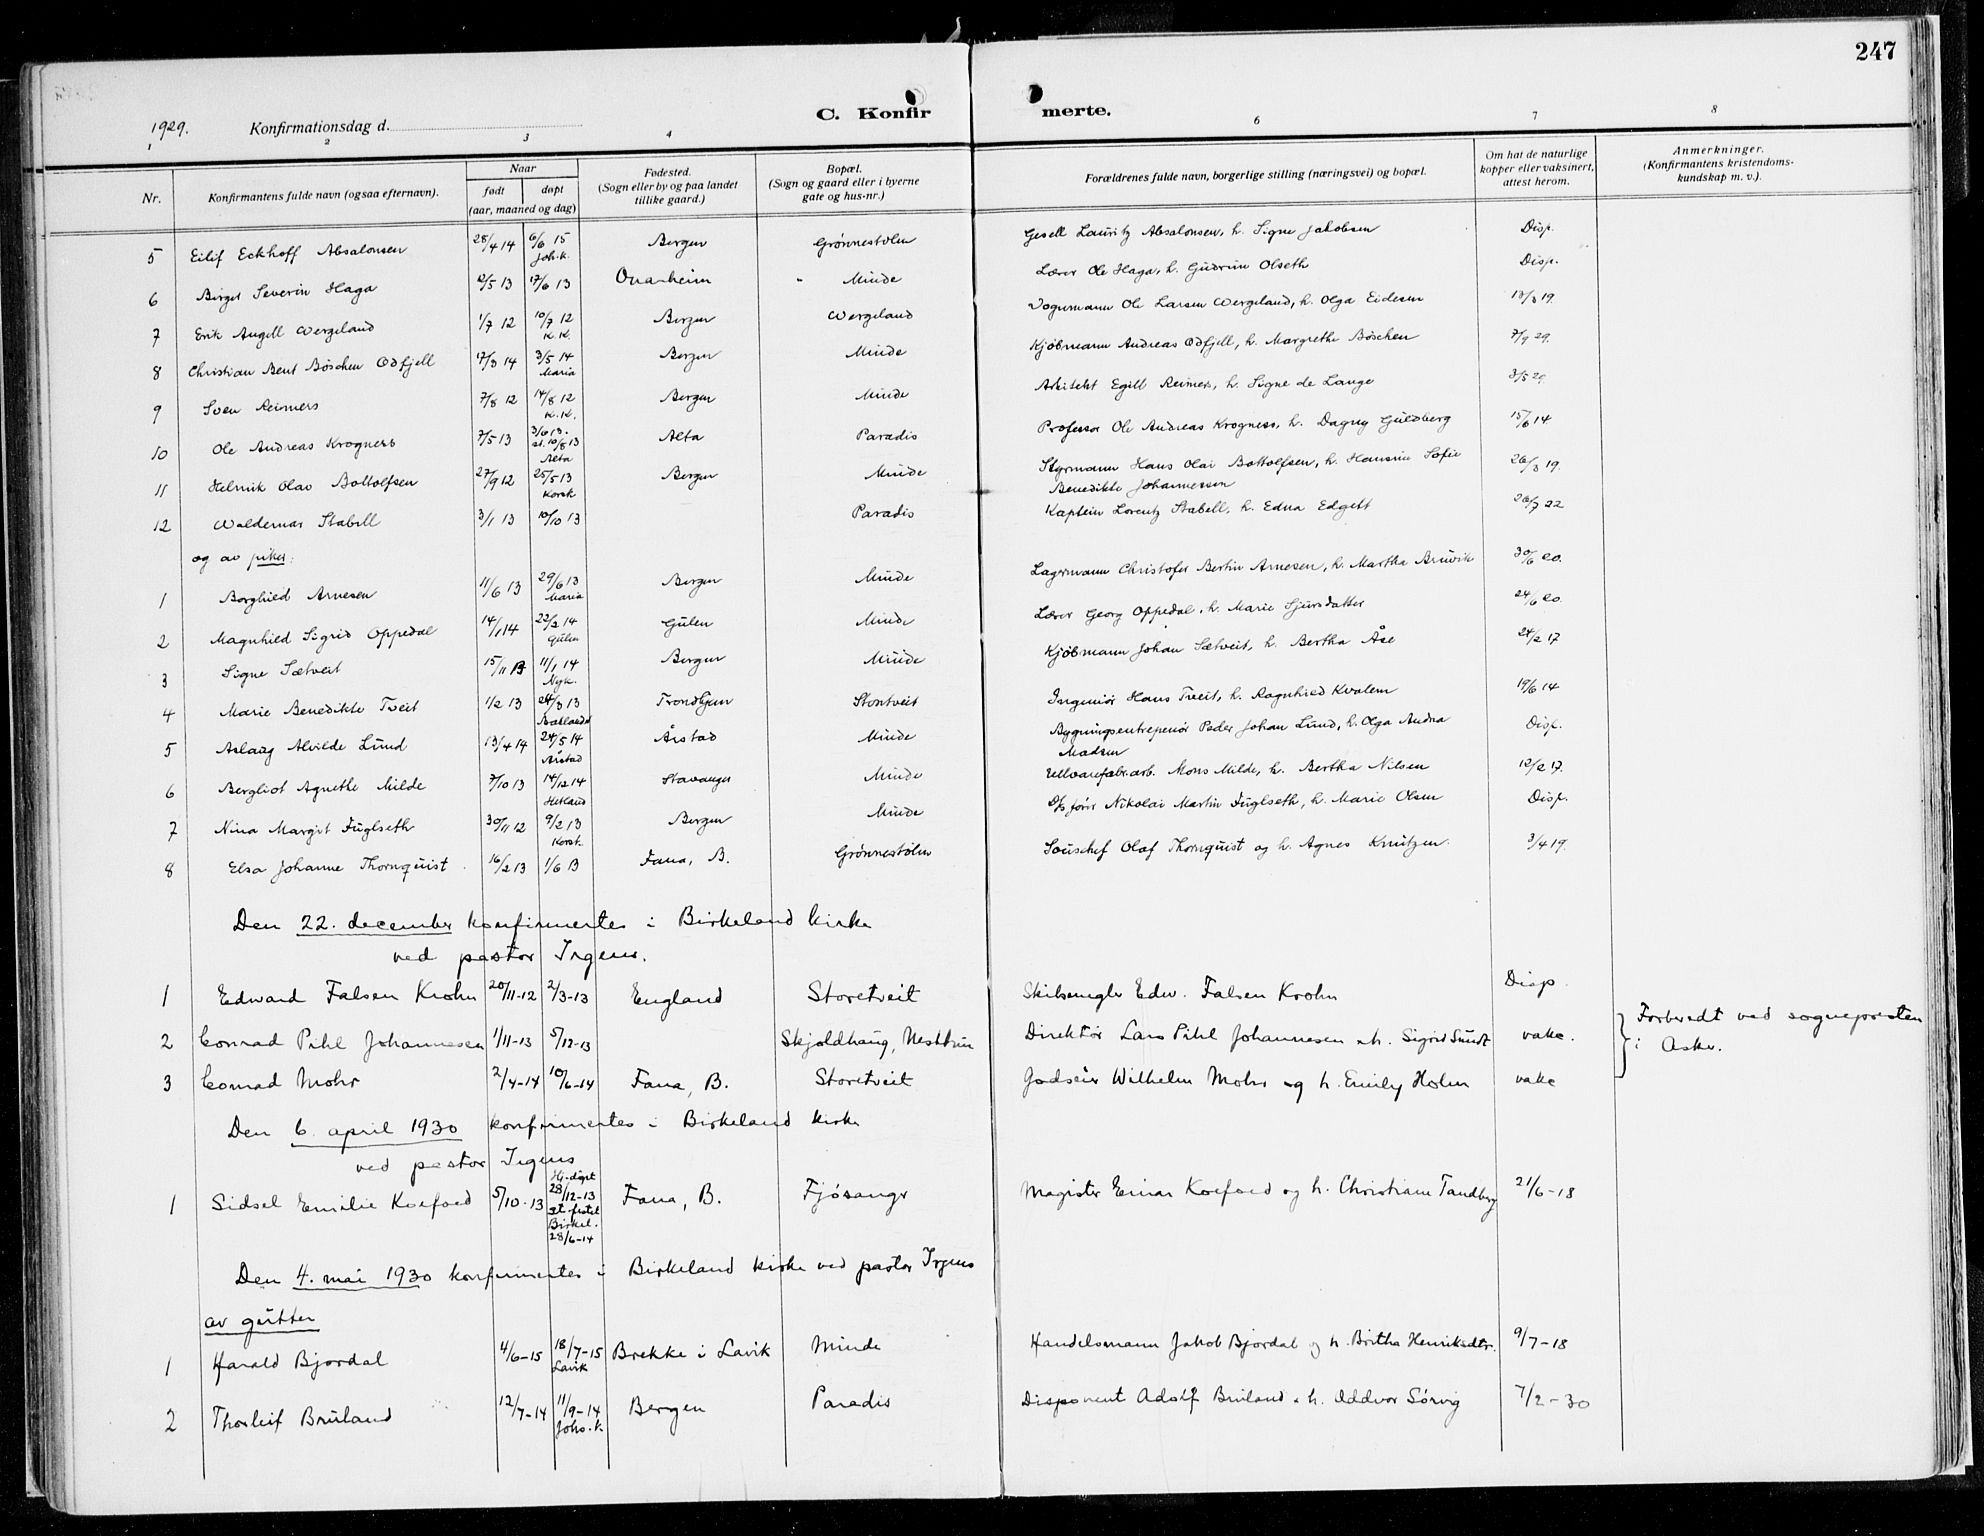 247
C. Konfirmerte.
1929. Konfirmationsdag d.
1 2 3 4 6 7 8
Nr. Konfirmantens fulde navn (ogsaa efternavn). Naar født døpt (aar, maaned og dag) Fødested. (Sogn eller by og paa landet tillike gaard.) Bopæl. (Sogn og gaard eller i byerne gate og hus-nr.) Forældrenes fulde navn, borgerlige stilling (næringsvei) og bopæl. Om hat de naturlige kopper eller vaksinert, attest herom. Anmerkninger. (Konfirmantens kristendoms-kundskap m. v.).
5 Eilif Eckhoff Absalonsen 28/4 14 6/6 15 Joh.k. Bergen Grønnestølen Gesell Lauritz Absalonsen, h. Signe Jakobsen Disp.
6 Birger Severin Haga 12/5 13 17/6 13 Onarheim " Minde Lærer Ole Haga, h. Gudrun Olseth Disp.
7 Erik Angell Wergeland 1/7 12 10/7 12 K.K. Bergen Wergeland Vognmann Ole Larsen Wergeland, h. Olga Eidesen 13/3 19.
8 Christian Bent Böschen Odfjell 17/3 14 3/5 14 Maria Bergen Minde Kjøbmann Andreas Odfjell, h. Margrethe Böschen 7/9 29.
9 Sven Reimers 7/8 12 14/8 12 K.K. Bergen Minde Arkitekt Egill Reimers, h. Signe de Lange 3/5 29.
10 Ole Andreas Krogness 7/5 13 3/6 13. st. 10/8 13 Alta Alta Paradis Professor Ole Andreas Krogness, h. Dagny Guldberg 15/6 14
11 Helmik Olav Bottolfsen 27/9 12 25/5 13 Korsk Bergen Minde Styrmann Hans Olai Bottolfsen, h. Hansine Sofie
Benedikte Johannessen 26/3 19.
12 Waldemar Stabell 3/1 13 10/10 13 Paradis Kaptein Lorentz Stabell, h. Edna Edgett 26/7 22
og av piker:
1 Borghild Arnesen 11/6 13 29/6 13 Maria Bergen Minde Lagermann Christofer Bertin Arnesen, h. Martha Arnvik 30/6 20.
2 Magnhild Sigrid Oppedal 14/1 14 22/2 14 Gulen Gulen Minde Lærer Georg Oppedal, h. Marie Sjursdatter 24/6 20.
3 Signe Sætveit 15/11 13 11/1 14 Nyk. Bergen Minde Kjøbmann Johan Sætveit, h. Bertha Åse 24/2 17
4 Marie Benedikte Tveit 1/2 13 24/3 13 Trondhjem Storetveit Ingeniør Hans Tveit, h. Ragnhild Kvalem 19/6 14
5 Aslaug Alvilde Lund 13/4 14 24/5 14 Årstad Årstad Minde Bygningsentrepenør Peder Johan Lund, h. Olga Andrea
Madsen Disp.
6 Bergliot Agnethe Milde 7/10 13 14/12 14 Hetland Stavanger Minde Ullvarefabr.arb. Mons Milde, h. Bertha Nilsen 12/2 17.
7 Nina Margit Fuglseth 30/11 12 9/2 13 Korsk. Bergen Minde D/s fører Nikolai Martin Fuglseth, h. Marie Olsen Disp.
8 Elsa Johanne Thornquist 16/2 13 1/6 13 Fana, B. Grønnestølen Souschef Olaf Thornquist og h. Agnes Knutzen. 3/4 19.
Den 22. december konfirmertes i Birkeland kirke
ved pastor Irgens.
1 Edward Falsen Krohn 20/11-12 2/3-13 England Storetveit Skibsmegler Edw. Falsen Krohn Disp.
2 Conrad Pihl Johannesen 1/11-13 5/12-13 Skjoldhaug, Nesttun Direktør Lars Pihl Johannesen & h. Sigrid Sundt vakc.
3 Conrad Mohr 2/4-14 10/6-14 Fana, B. Storetveit Godseier Wilhelm Mohr og h. Emily Holm vakc
Forberedt ved sognepresten
i Asker.
Den 6. april 1930 konfirmertes i Birkeland kirke
ved pastor Irgens
1 Sidsel Emilie Koefoed 5/10-13 Hj-døpt 28/12-13 st. festet Birkel. 28/6-14 Fana, B. Fjösanger Magister Einar Koefoed og h. Christiane Tandberg 21/6-18
Den 4. mai 1930 konfirmertes i Birkeland kirke ved pastor Irgens
av gutter
1 Harald Bjordal 4/6-15 18/7-15 Lavik Brekke i Lavik Minde Handelsmann Jakob Bjordal og h. Britha Henriksdtr. 9/7-18
2 Thorleif Bruland 12/7-14 11/9-14 Johs.k Bergen Paradis Disponent Adolf Bruland & h. Oddvor Sörvig 7/2-30